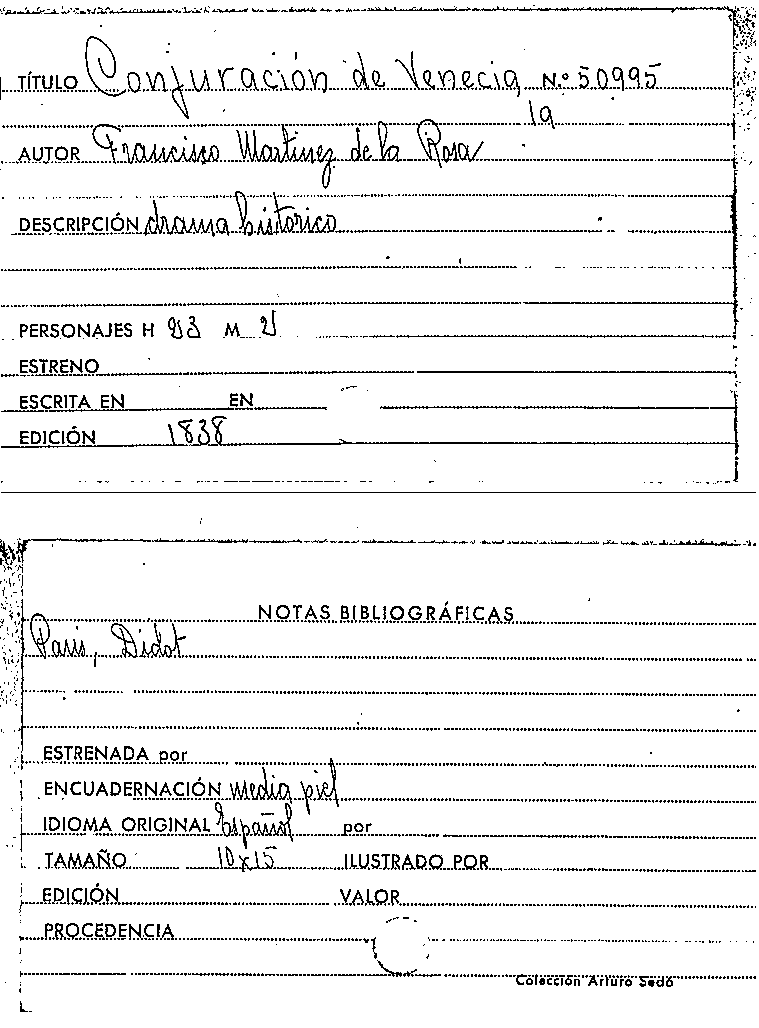 TÍTULO Conjuración de Venecia, N.º 50995
la
AUTOR Francisco Martinez de la Rosa
DESCRIPCIÓN drama historico
PERSONAJES H 23 M 2
ESTRENO
ESCRITA EN EN
EDICIÓN 1838
NOTAS BIBLIOGRÁFICAS
Paris, Didot
ESTRENADA por
ENCUADERNACIÓN media piel
IDIOMA ORIGINAL Español por
TAMAÑO 10x15 ILUSTRADO POR
EDICIÓN VALOR
PROCEDENCIA
Colección Arturo Sedó